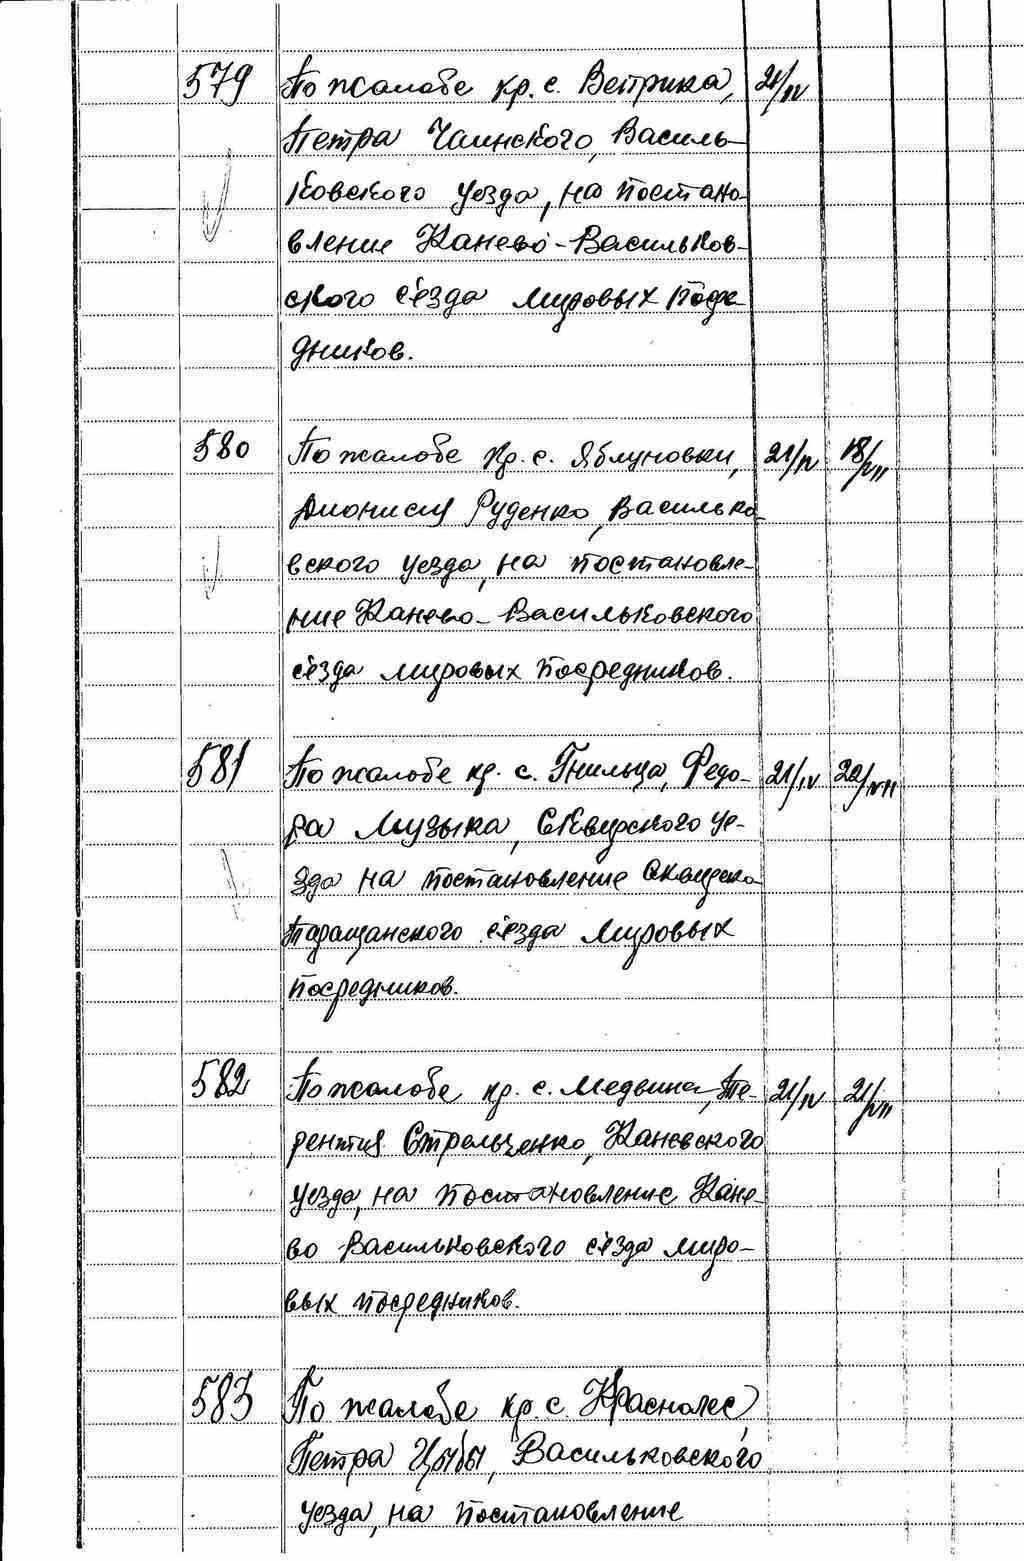 579 По жалобе кр. с. Ветрика, 21/IV
Петра Чаинского, Василь-
ковского уезда, на постано-
вление Канево-Васильков-
ского с'езда мировых поср-
дников.
580 По жалобе кр. с. Яблуновки, 21/IV 18/VII
Дионисия Руденко, Василько-
вского уезда, на постановле-
ние Канево-Васильковского
с'езда мировых посредников.
581 По жалобе кр. с. Гнильца, Федо- 21/IV
ра Музыка, Сквирского уе-
зда на постановление Сквирско
Таращанского с'езда мировых
посредников.
582 По жалобе кр. с. Медвина, Те- 21/IV 21/VII
рентия Стрельченко, Каневского
уезда, на постановление Кане-
во Васильковского с'езда миро-
вых посредников.
583 По жалобе кр. с. Краснолес,
Петра Цыбы, Васильковского
уезда, на постановление